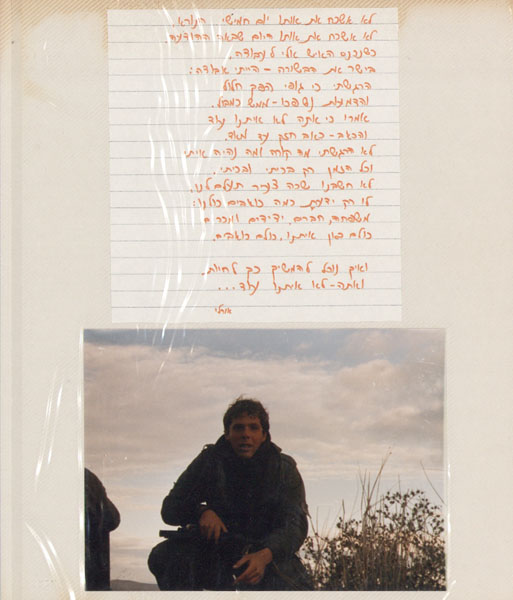 לא אשכח את אותו יום חמישי הנורא.
לא אשכח את אותו היום שבאה ההודעה.
כשנכנס האיש אלי לעבודה.
בישר את הבשורה - הייתי אבודה:
הרגשתי כי גופי הפך חלול
והדמעות נשפכו - ממש כמבול.
אמרו כי אתה לא איתנו עוד
והכאב - כאב חזק עד מאוד.
לא הרגשתי מה קורה ומה נהיה איתי
וכל הזמן רק בכיתי ובכיתי.
לא חשבנו שכה צעיר תעלם לנו.
לו רק ידעת כמה כואבים כולנו:
משפחה, חברים, ידידים ומכרים
כולם פה איתנו, כולם כואבים.
ואיך נוכל להמשיך כך לחיות.
ואתה - לא איתנו עוד...